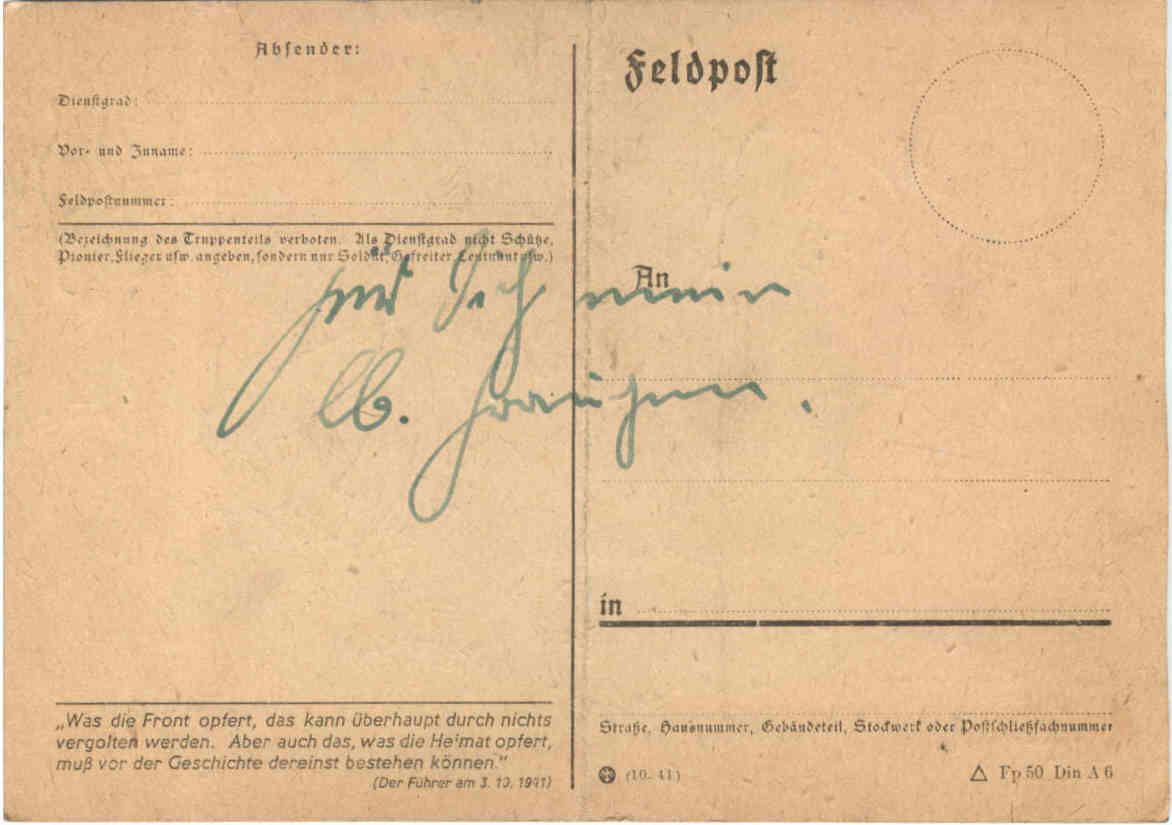 Absender:
Dienstgrad:
Vor- und Zuname:
Feldpostnummer:
(Bezeichnung des Truppenteils verboten. Als Dienstgrad nicht Schütze,
Pionier, Flieger usw. angeben, sondern nur Soldat, Gefreiter, Leutnant usw.)
Feldpost
An
für Dich mein
lb. Frauchen.
in
Straße, Hausnummer, Gebäudeteil, Stockwerk oder Postschließfachnummer
„Was die Front opfert, das kann überhaupt durch nichts
vergolten werden. Aber auch das, was die Heimat opfert,
muß vor der Geschichte dereinst bestehen können."
(Der Führer am 3. 10. 1941)
(10. 41)
Fp 50 Din A 6